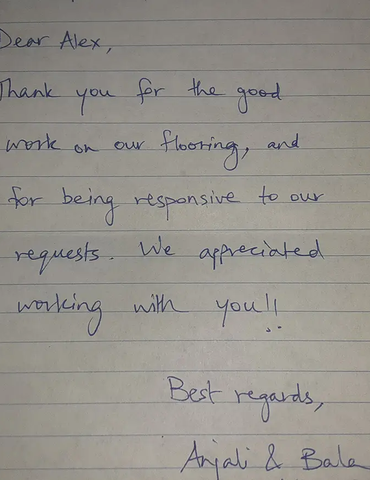 Dear Alex,
Thank you for the good
work on our flooring, and
for being responsive to our
requests. We appreciated
working with you!!
Best regards,
Anjali & Bala